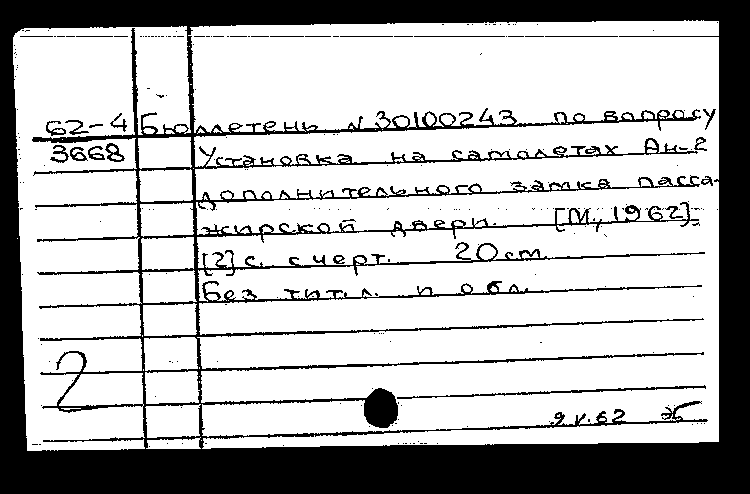 62-4 Бюллетень N 30100243 по вопросу
3668 Установка на самолетах Ан-2
дополнительного замка пасса-
жирской двери. [М., 1962].
[2] с. с черт. 20 cm.
Без тит. л. и обл.
2
9.V.62